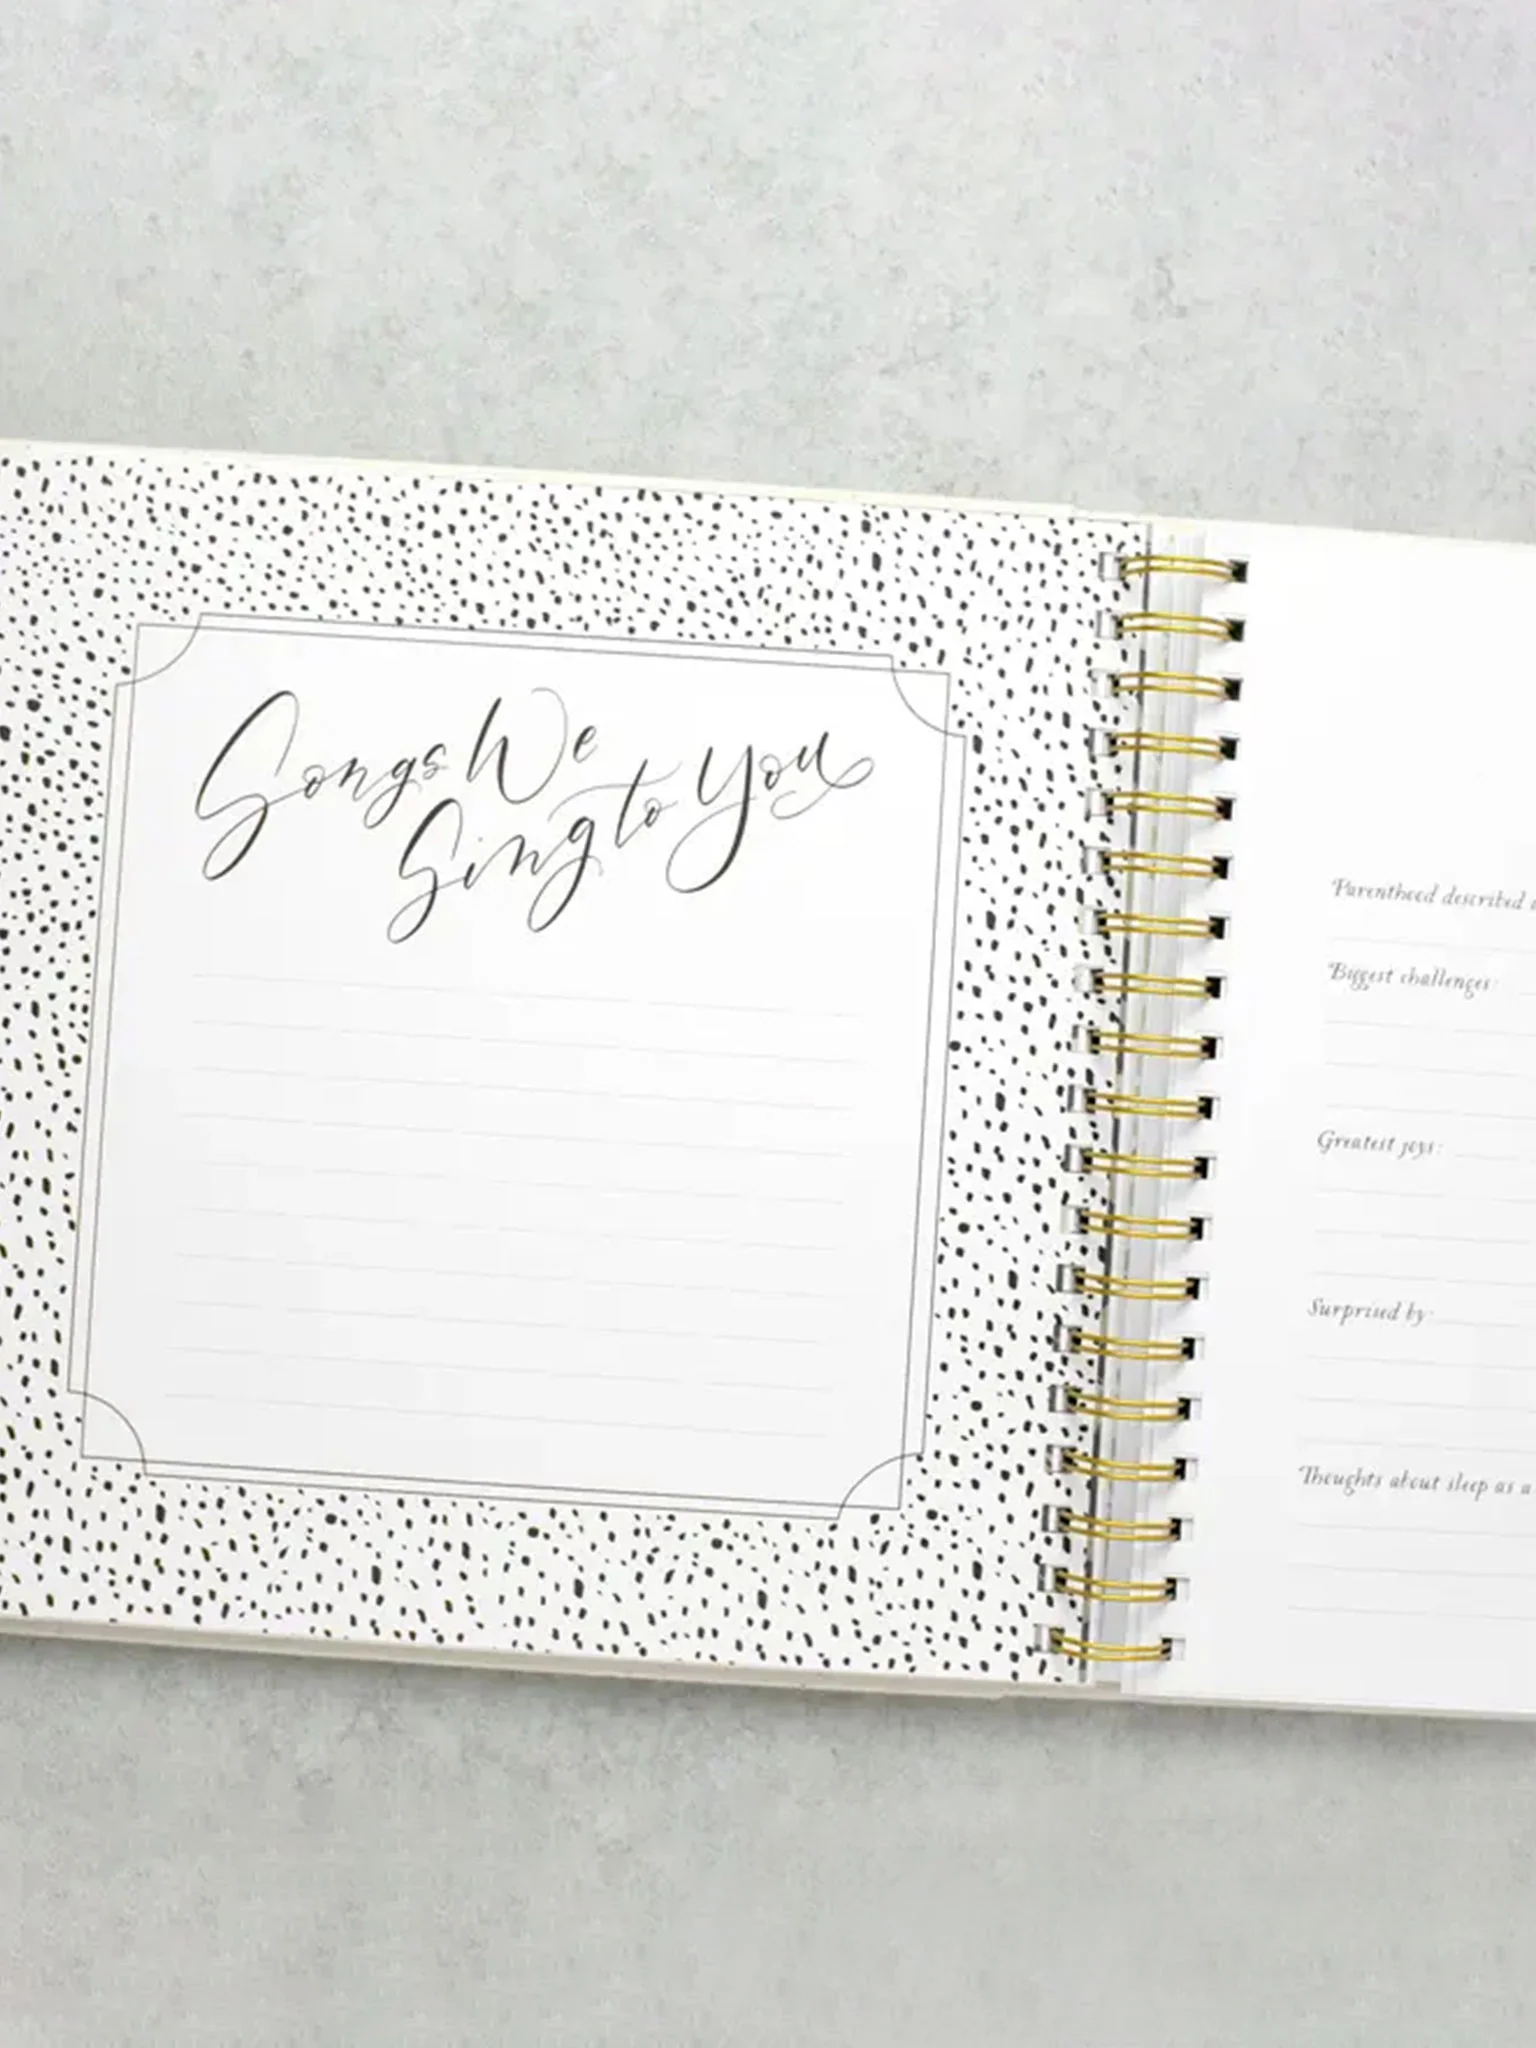 Songs We
Sing to You
Parenthood described
Biggest challenges:
Greatest joys:
Surprised by:
Thoughts about sleep as a